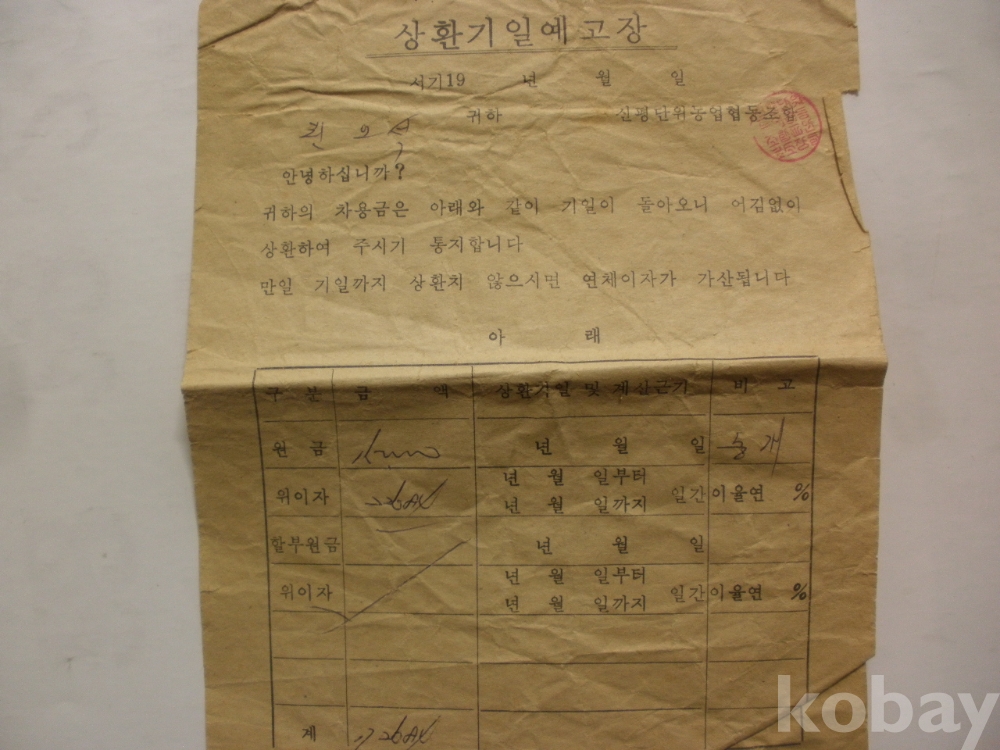 상환기일예고장
서기19 년 월 일
귀하 신평단위농업협동조합
안녕하십니까?
귀하의 차용금은 아래와 같이 기일이 돌아오니 어김없이
상환하여 주시기 통지합니다
만일 기일까지 상환치 않으시면 연체이자가 가산됩니다
아 래
구 분 금 액 상환기일 및 계산근거 비 고
원 금 년 월 일
위이자 년 월 일부터 년 월 일까지 일간 이율연 %
할부원금 년 월 일
위이자 년 월 일부터 년 월 일까지 일간 이율연 %
계
kobay